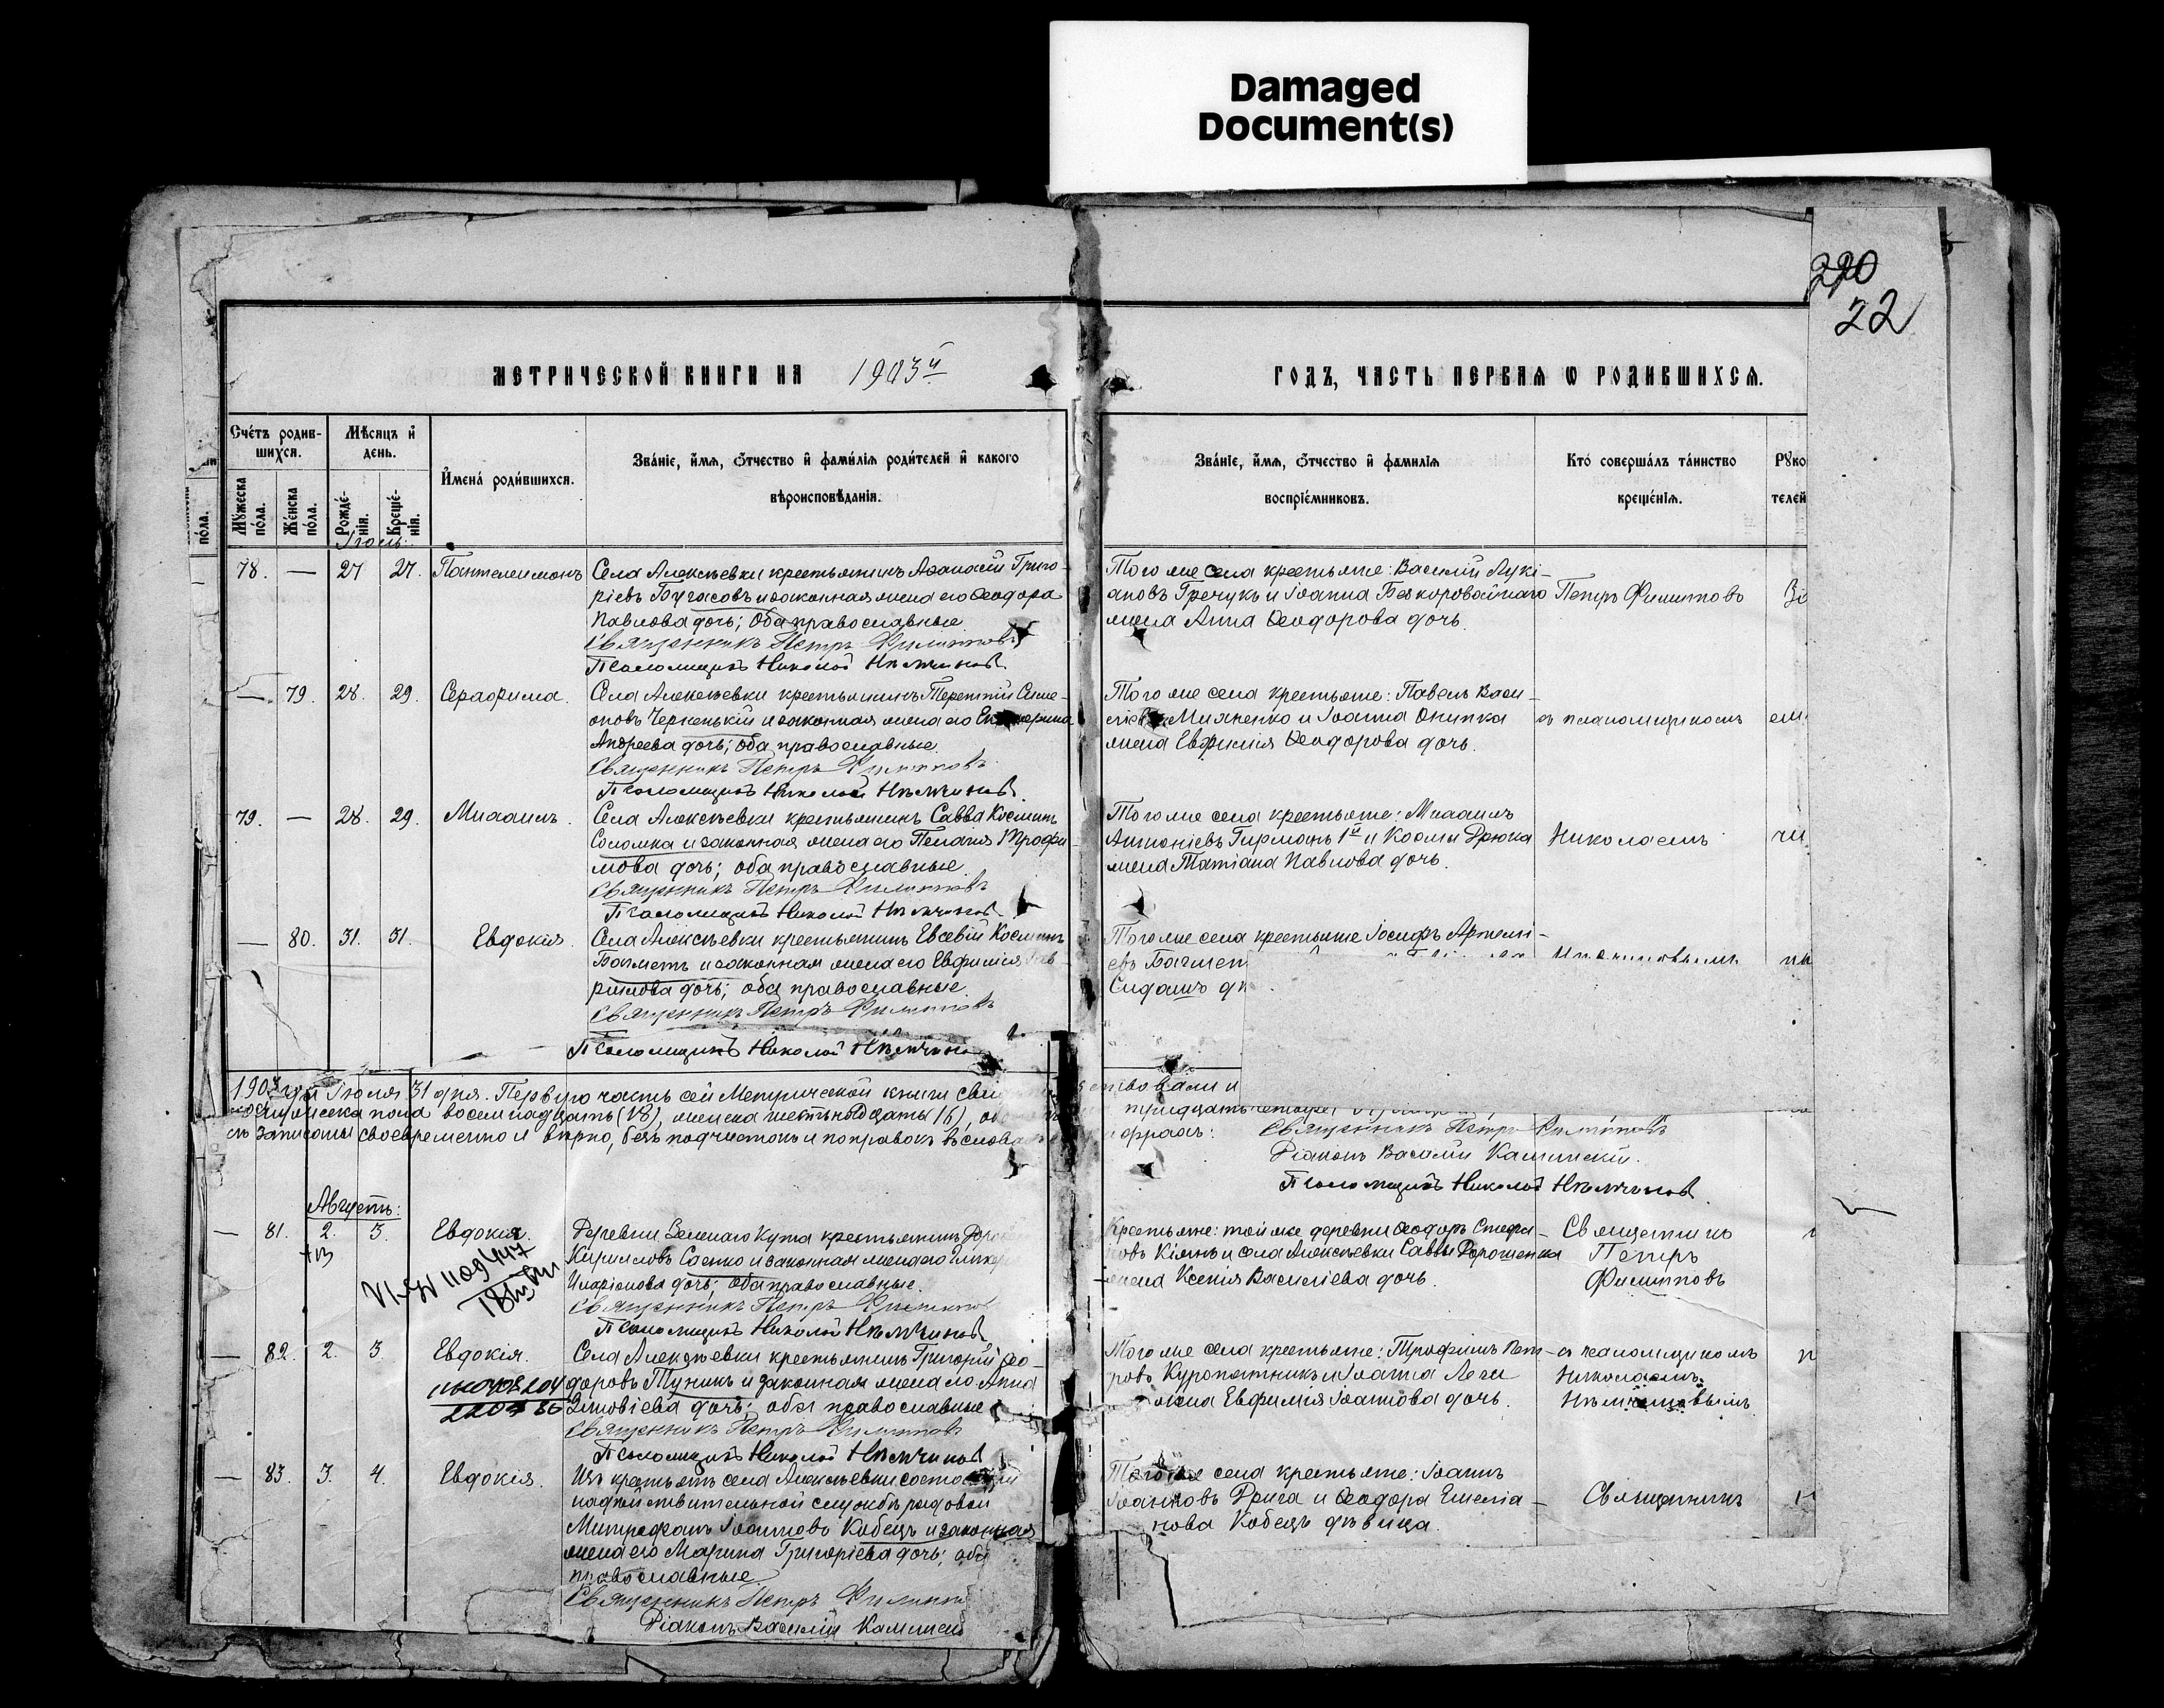 Damaged
Document(s)
220
22
МЕТРИЧЕСКОЙ КНИГИ НА 1903й
ГОДЪ, ЧАСТЬ ПЕРВАЯ Ѡ РОДИВШИХСЯ.
Счетъ родив-
шихся.
Мѣсяцъ и
день.
Мужеска
пола.
Женска
пола.
Рожде-
нія.
Креще-
нія.
Имена родившихся.
Званіе, имя, отчество и фамилія родителей и какого
вѣроисповѣданія.
Званіе, имя, отчество и фамилія
воспріемниковъ.
Кто совершалъ таинство
крещенія.
Руко
телей
Іюль:
78. — 27 27. Пантелеимонъ
Села Алексѣевки крестьянинъ Аѳанасій Григо-
ріевъ Бугасовъ и законная жена его Ѳеодора
Павлова дочь; оба православные.
Священникъ Петръ Филипповъ
Псаломщикъ Николай Нѣмчиновъ
Того же села крестьяне: Василій Луки-
ановъ Гречукъ и Іоанна Безкоровайнаго
жена Анна Ѳеодорова дочь.
Петръ Филипповъ
— 79. 28. 29. Серафима.
Села Алексѣевки крестьянинъ Терентій Симе-
оновъ Черненькій и законная жена его Екатерина
Андреева дочь; оба православные.
Священникъ Петръ Филипповъ
Псаломщикъ Николай Нѣмчиновъ.
Того же села крестьяне: Павелъ Васи-
ліевъ Михненко и Іоанна Онипка
жена Евфимія Ѳеодорова дочь.
съ псаломщикомъ
79. — 28. 29. Михаилъ.
Села Алексѣевки крестьянинъ Савва Косминъ
Соломка и законная жена его Пелагія Трофи-
мова дочь; оба православные.
Священникъ Петръ Филипповъ
Псаломщикъ Николай Нѣмчиновъ
Того же села крестьяне: Михаилъ
Антоніевъ Гирманъ 1й и Космы Дрюка
жена Татіана Павлова дочь.
Николаемъ
— 80. 31. 31. Евдокія.
Села Алексѣевки крестьянинъ Евсевій Косминъ
Багметъ и законная жена его Евфимія Гав-
рилова дочь; оба православные.
Священникъ Петръ Филипповъ
Псаломщикъ Николай Нѣмчинов
Того же села крестьяне Іосифъ Артемі-
евъ Багмет
Сидашъ д
1903 года Іюля 31 дня. Первую часть сей Метрической книги свид
ствовали и
мужеска пола восемнадцать (18), женска шестнадцать (16), о
тридцать четыре
съ записаны своевременно и вѣрно, безъ подчистокъ и поправокъ въ словахъ
и фразахъ:
Священникъ Петръ Филипповъ
Діаконъ Василій Калинскій.
Псаломщикъ Николай Нѣмчиновъ.
Августъ:
— 81. 2. 3. Евдокія.
Деревни Зеленаго Кута крестьянинъ
Кирилловъ Саенко и законная жена его
Иларіонова дочь; оба православные.
Священникъ Петръ Филиппов
Псаломщикъ Николай Нѣмчиновъ
Крестьяне: той же деревни Ѳеодоръ Стефа-
новъ Кіянъ и села Алексѣевки Саввы Дорошенка
жена Ксенія Василіева дочь.
Священникъ
Петръ
Филипповъ
— 82. 2. 3. Евдокія.
Села Алексѣевки крестьянинъ Григорій Ѳео-
доровъ Туникъ и законная жена его Анна
Зиновіева дочь; оба православные
Священникъ Петръ Филипповъ
Псаломщикъ Николай Нѣмчиновъ
Того же села крестьяне: Трофимъ Пет-
ровъ Куропятникъ и Іоанна Леги
жена Евфимія Іоаннова дочь.
съ псаломщикомъ
Николаемъ
Нѣмчиновымъ
— 83. 3. 4. Евдокія.
Изъ крестьянъ села Алексѣевки состоящій
на дѣйствительной службѣ рядовой
Митрофанъ Іоанновъ Кобецъ и законная
жена его Марина Григоріева дочь; оба
православные.
Священникъ Петръ Филипп
Діаконъ Василій Калинскі
Того же села крестьяне: Іоаннъ
Іоанновъ Дрига и Ѳеодора Емеліа-
нова Кобецъ дѣвица.
Священникъ